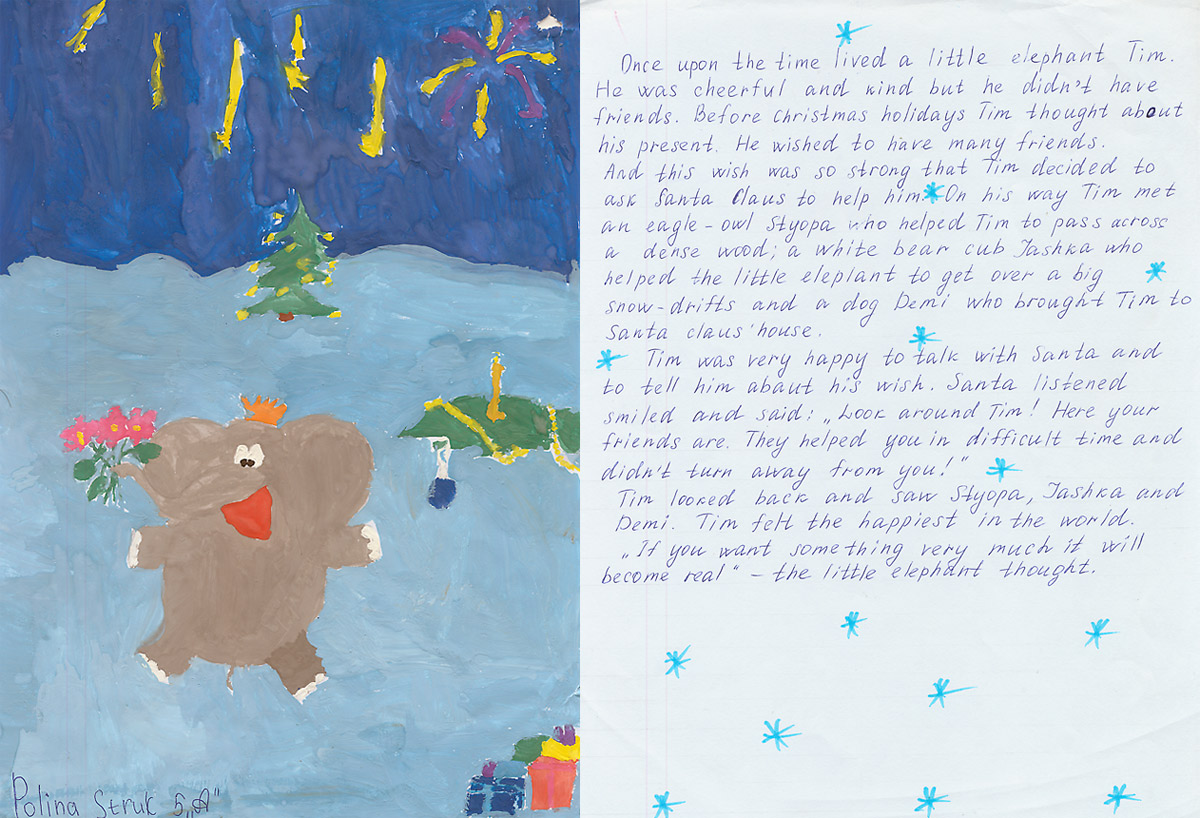 Polina Struk 5„A"
Once upon the time lived a little elephant Tim.
He was cheerful and kind but he didn't have
friends. Before christmas holidays Tim thought about
his present. He wished to have many friends.
And this wish was so strong that Tim decided to
ask Santa Claus to help him. On his way Tim met
an eagle-owl Styopa who helped Tim to pass across
a dense wood; a white bear cub Jashka who
helped the little eleplant to get over a big
snow-drifts and a dog Demi who brought Tim to
Santa claus' house.
Tim was very happy to talk with Santa and
to tell him about his wish. Santa listened
smiled and said: „Look around Tim! Here your
friends are. They helped you in difficult time and
didn't turn away from you!"
Tim looked back and saw Styopa, Jashka and
Demi. Tim felt the happiest in the world.
„If you want something very much it will
become real" – the little elephant thought.